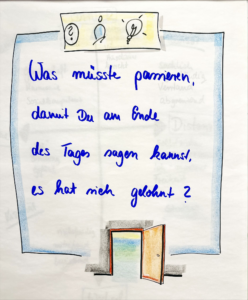 Was müsste passieren,
damit Du am Ende
des Tages sagen kannst,
es hat sich gelohnt?